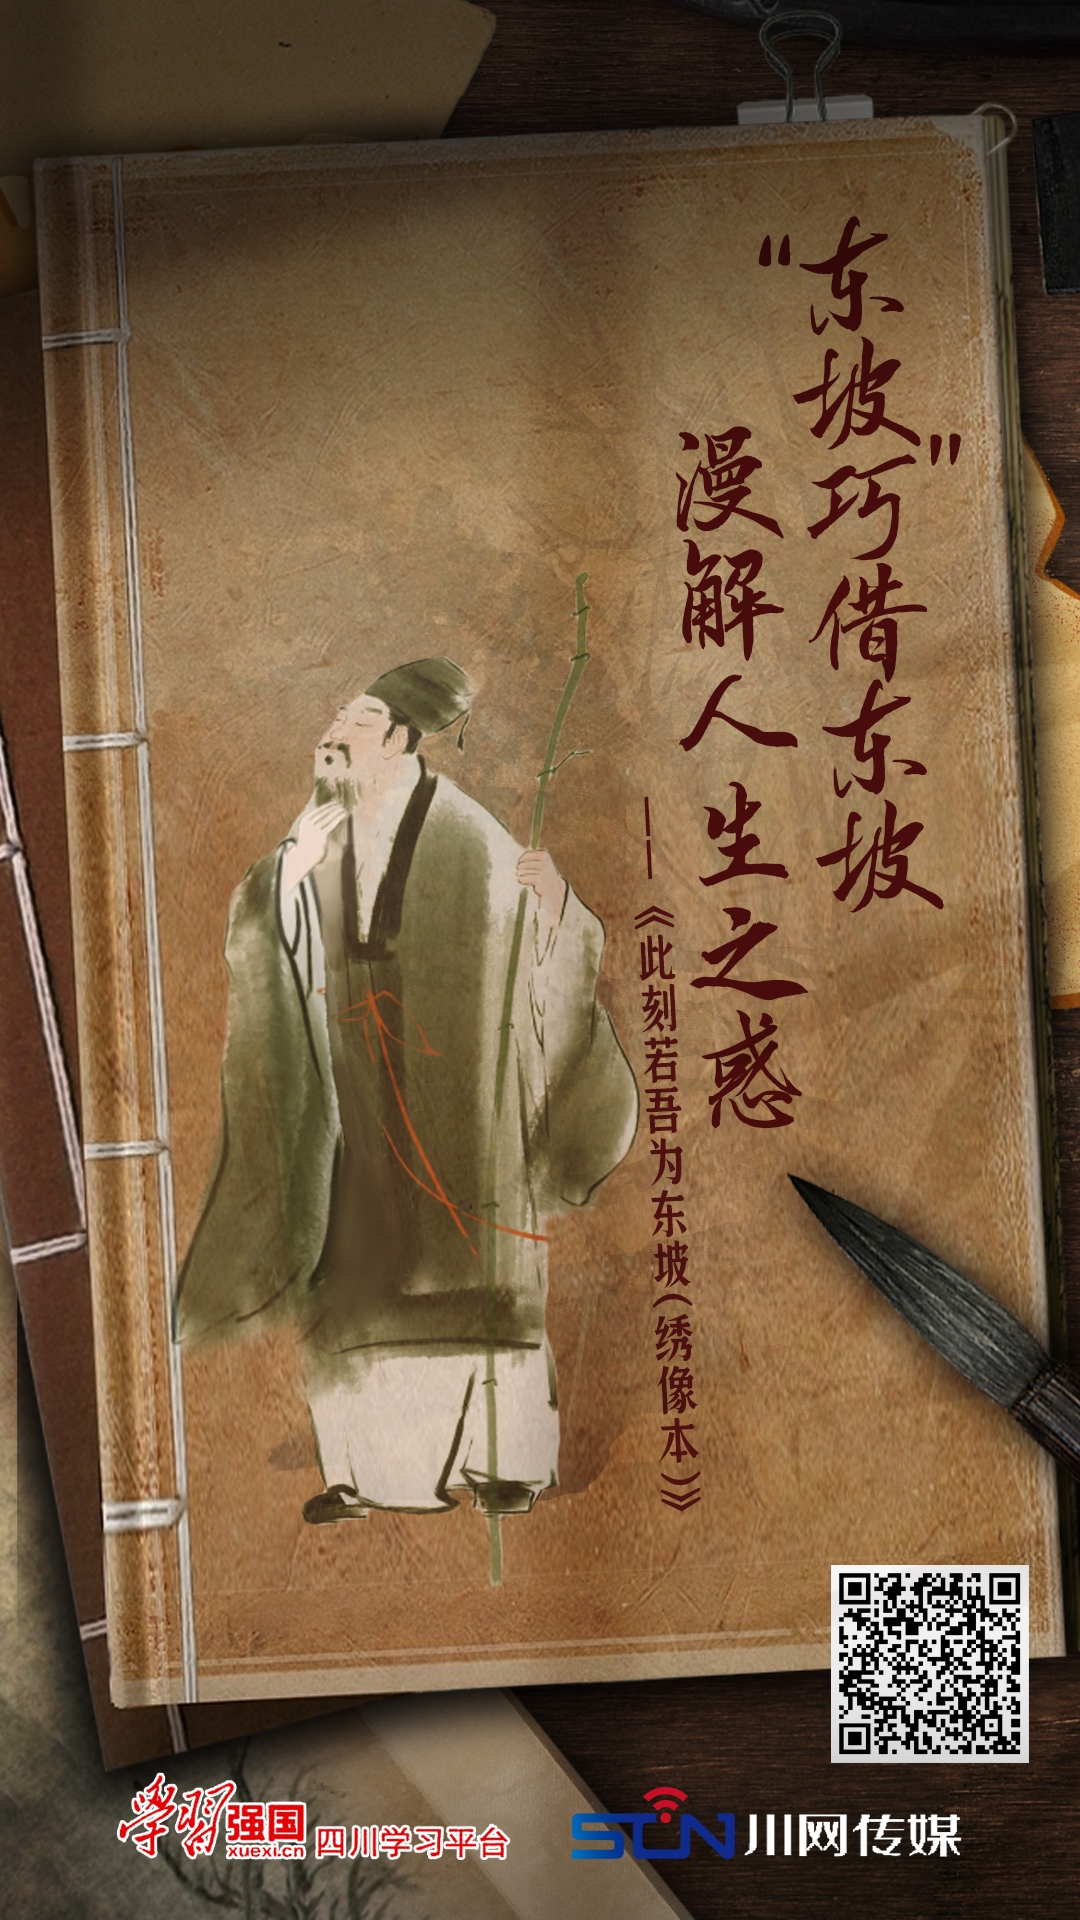 “东坡巧”借东坡
漫解人生之惑
——《此刻若吾为东坡（绣像本》》
学习强国
xuexi.cn
四川学习平台
SCN川网传媒